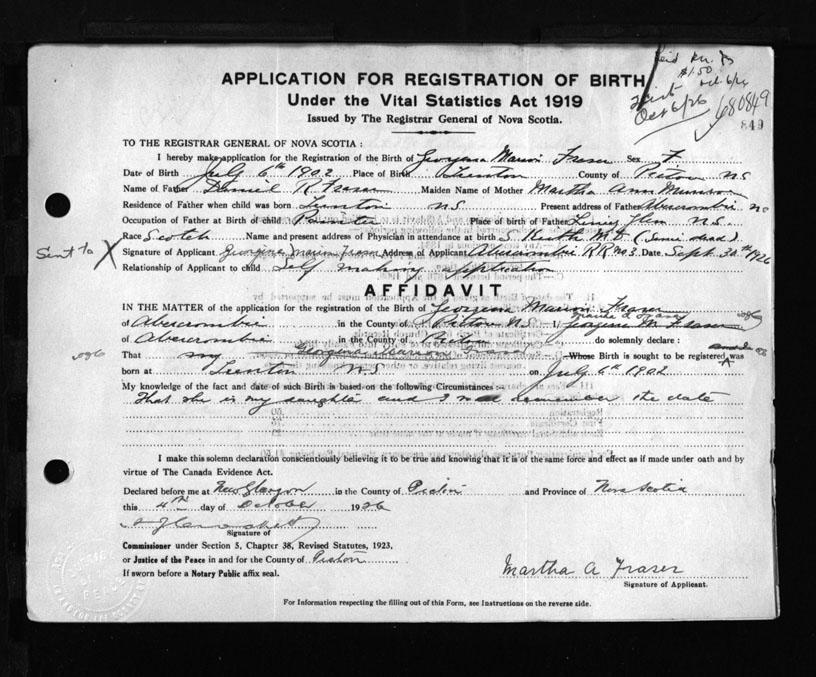 APPLICATION FOR REGISTRATION OF BIRTH
Under the Vital Statistics Act 1919
Issued by The Registrar General of Nova Scotia.
$1.50
Oct 6/26
680849
849
TO THE REGISTRAR GENERAL OF NOVA SCOTIA :
I hereby make application for the Registration of the Birth of Georgina Marion Fraser Sex F
Date of Birth July 6th 1902 Place of Birth County of Pictou NS
Name of Father Daniel R Fraser Maiden Name of Mother Martha Ann
Residence of Father when child was born NS Present address of Father Abercrombie NS
Occupation of Father at Birth of child Painter Place of birth of Father NS
Race Scotch Name and present address of Physician in attendance at birth S Keith M.D (Since dead)
Sent to X Signature of Applicant Georgina Marion Fraser Address of Applicant Abercrombie RR no3 Date Sept. 30th 1926
Relationship of Applicant to child Self making application
AFFIDAVIT
IN THE MATTER of the application for the registration of the Birth of Georgina Marion Fraser
of Abercrombie in the County of Pictou NS I, Georgina M Fraser
of Abercrombie in the County of Pictou do solemnly declare :
That my Whose Birth is sought to be registered was
born at NS on July 6th 1902
My knowledge of the fact and date of such Birth is based on the following Circumstances :-
That she is my daughter and I remember the date
I make this solemn declaration conscientiously believing it to be true and knowing that it is of the same force and effect as if made under oath and by
virtue of The Canada Evidence Act.
Declared before me at New Glasgow in the County of Pictou and Province of Nova Scotia
this 4th day of October 1926
Signature of
Commissioner under Section 5, Chapter 38, Revised Statutes, 1923,
or Justice of the Peace in and for the County of Pictou
If sworn before a Notary Public affix seal.
Martha A Fraser
Signature of Applicant.
For Information respecting the filling out of this Form, see Instructions on the reverse side.